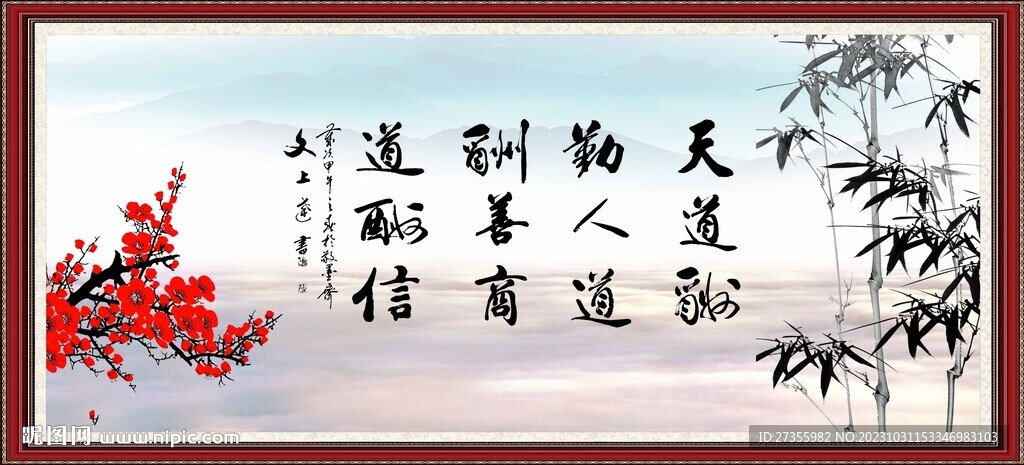 天道酬
勤人道
酬善商
道酬信
岁次甲午之春於敬墨斋
文上莲书
昵图网 www.nipic.com
ID:27355982 NO:20231031153346983103